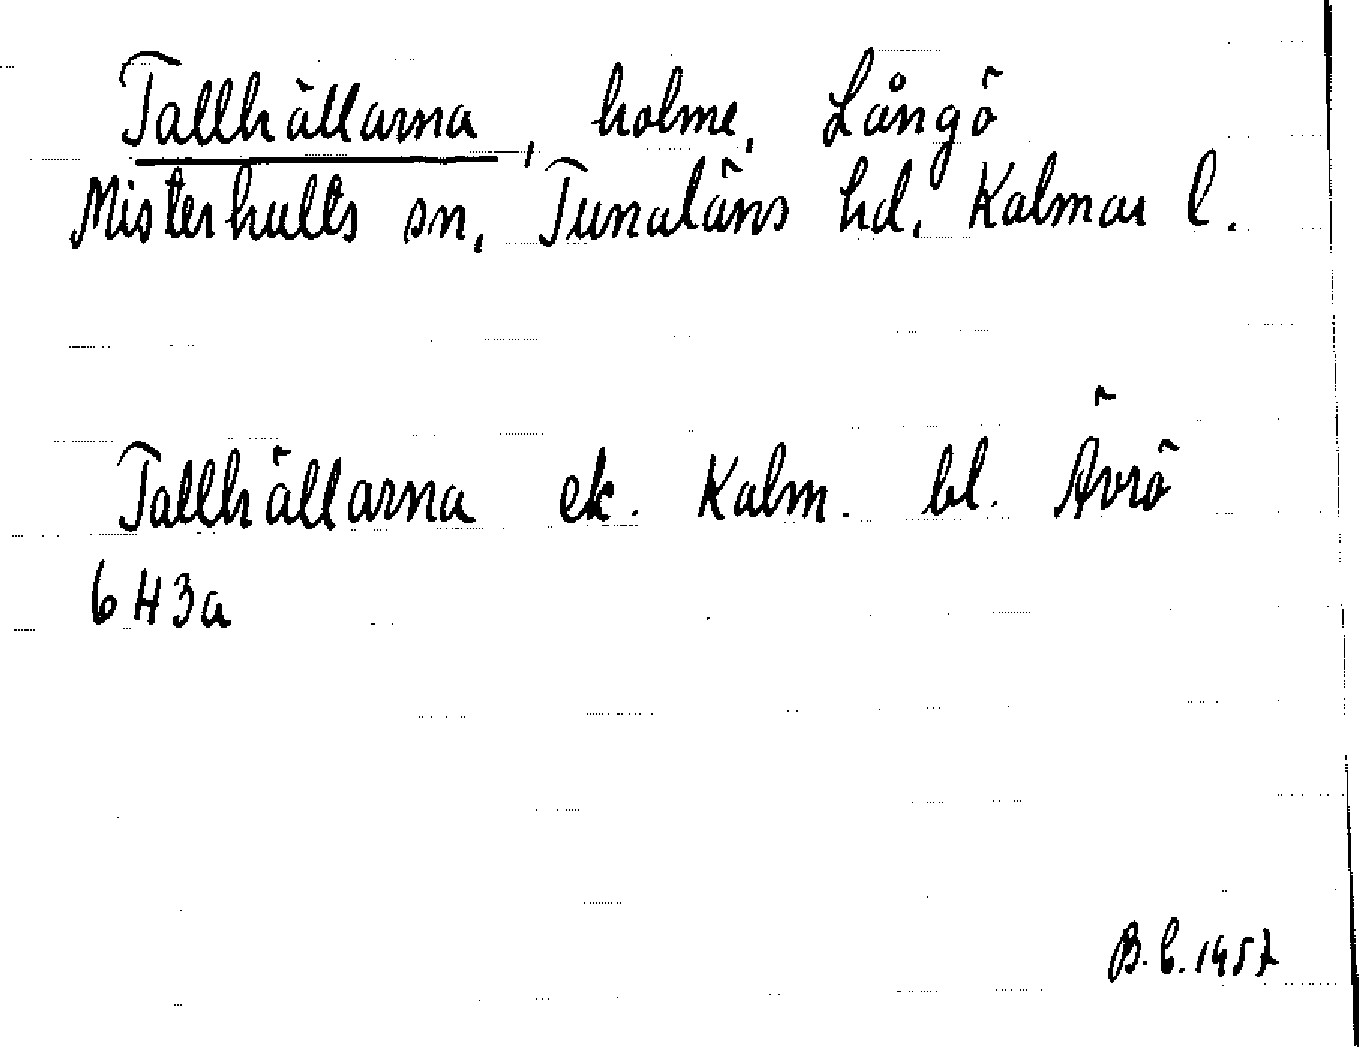 Tallhällarna, holme, Långö
Misterhults sn, Tunaläns hd, Kalmar l.
Tallhällarna ek. Kalm. bl. Ävrö
6 H 3a
B. C. 1957